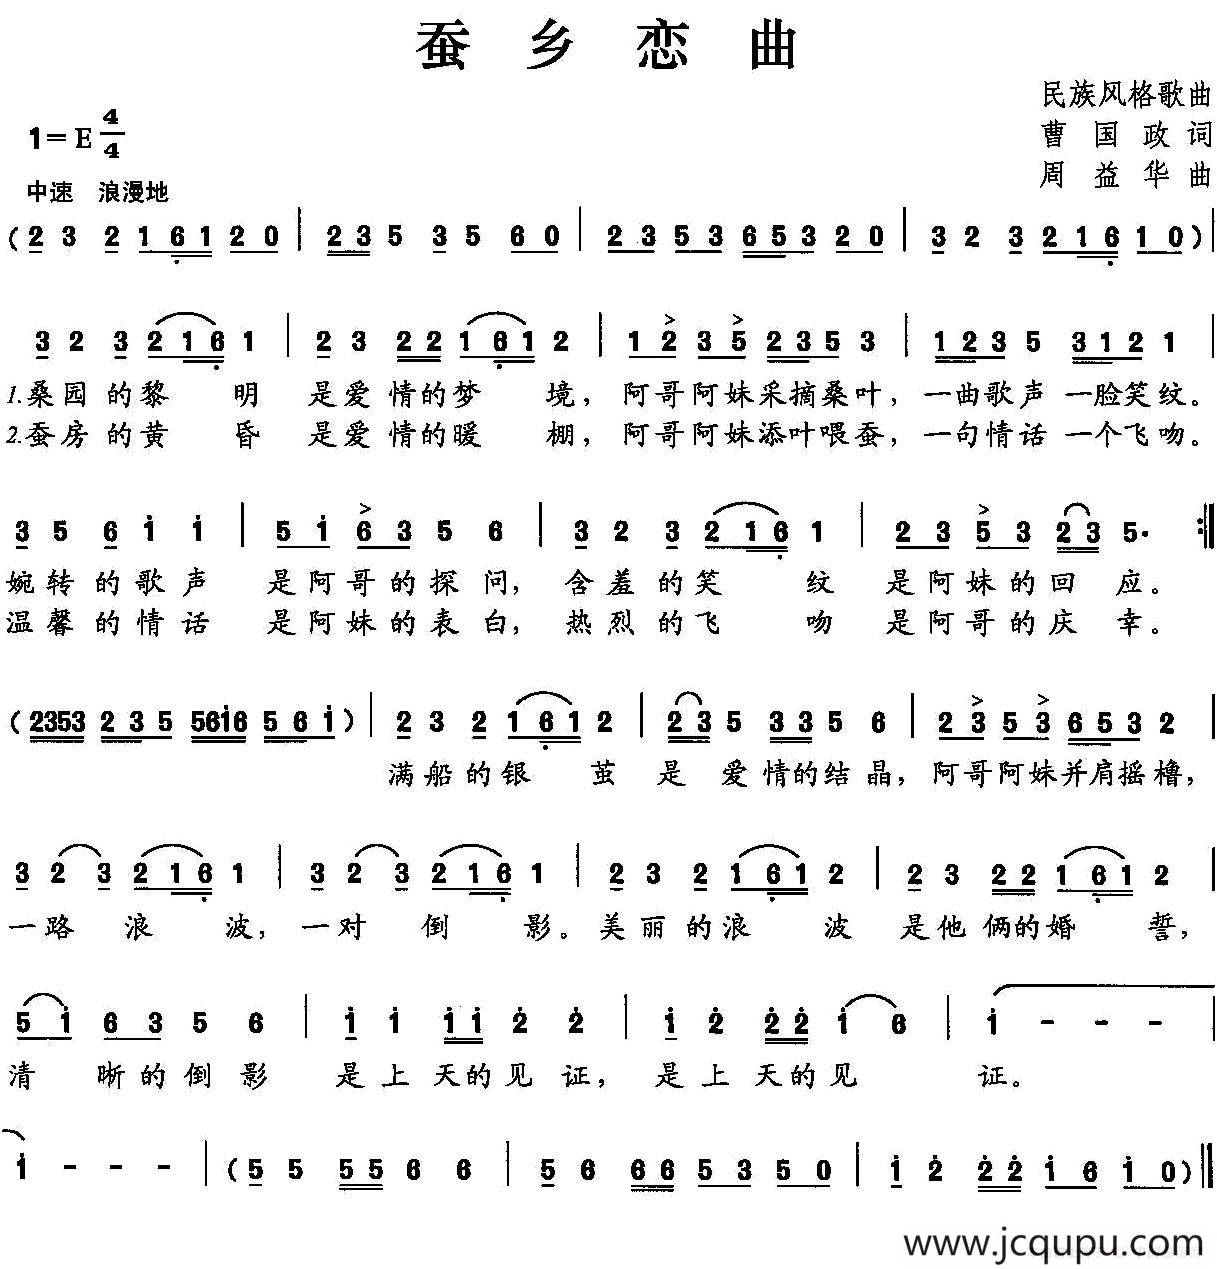 蚕乡恋曲
民族风格歌曲
1=E 4/4
曹国政词
周益华曲
中速 浪漫地
(2 3 2 1 6 1 2 0 | 2 3 5 3 5 6 0 | 2 3 5 3 6 5 3 2 0 | 3 2 3 2 1 6 1 0) |
3 2 3 2 1 6 1 | 2 3 2 2 1 6 1 2 | 1 2 3 5 2 3 5 3 | 1 2 3 5 3 1 2 1 |
1.桑园的黎明 是爱情的梦境，阿哥阿妹采摘桑叶，一曲歌声一脸笑纹。
2.蚕房的黄昏 是爱情的暖棚，阿哥阿妹添叶喂蚕，一句情话一个飞吻。
3 5 6 i i | 5 i 6 3 5 6 | 3 2 3 2 1 6 1 | 2 3 5 3 2 3 5· :|
婉转的歌声 是阿哥的探问，含羞的笑纹 是阿妹的回应。
温馨的情话 是阿妹的表白，热烈的飞吻 是阿哥的庆幸。
(2353 2 3 5 56i6 5 6 i) | 2 3 2 1 6 1 2 | 2 3 5 3 3 5 6 | 2 3 5 3 6 5 3 2 |
满船的银茧 是爱情的结晶，阿哥阿妹并肩摇橹，
3 2 3 2 1 6 1 | 3 2 3 2 1 6 1 | 2 3 2 1 6 1 2 | 2 3 2 2 1 6 1 2 |
一路浪波，一对倒影。美丽的浪波 是他俩的婚誓，
5 i 6 3 5 6 | i i i i 2 2 | i 2 2 2 i 6 | i - - - |
清晰的倒影 是上天的见证，是上天的见证。
i - - - | (5 5 5 5 6 6 | 5 6 6 6 5 3 5 0 | i 2 2 2 i 6 i 0) ||
www.jcqupu.com